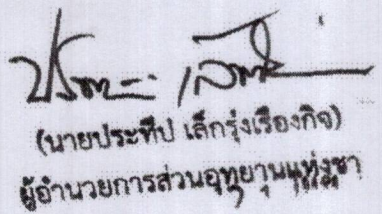 (นายประทีป เล็กรุ่งเรืองกิจ)
ผู้อำนวยการส่วนอุทยานแห่งชาติ